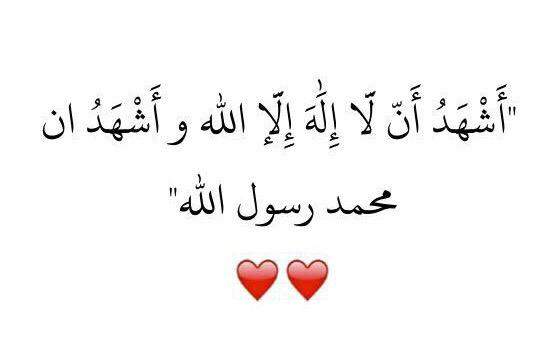 "أَشْهَدُ أَنّ لّا إِلَٰهَ إِلّإ الله و أَشْهَدُ ان
محمد رسول الله"
❤️❤️